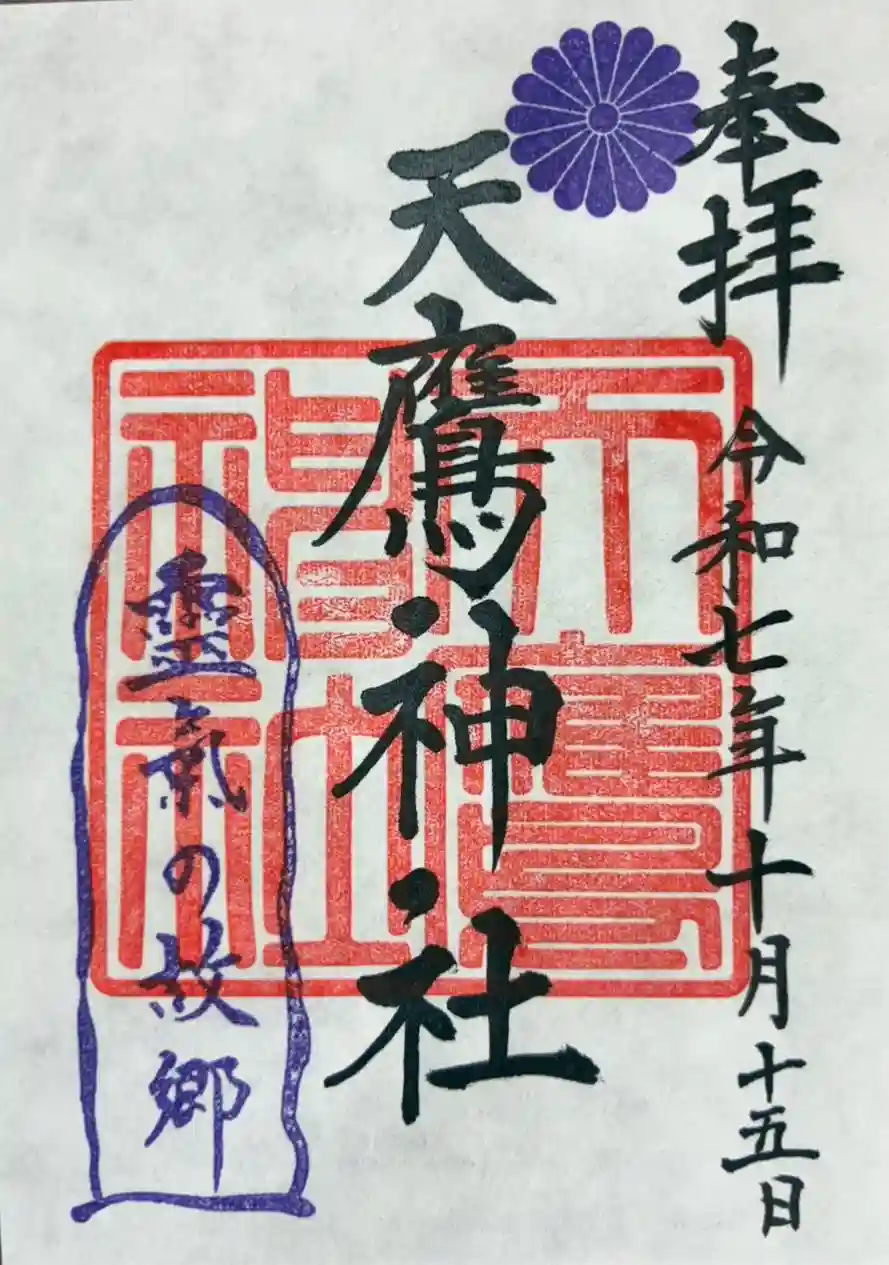 奉拝
令和七年十月十五日
天鷹神社
天鷹神社
靈氣の故郷